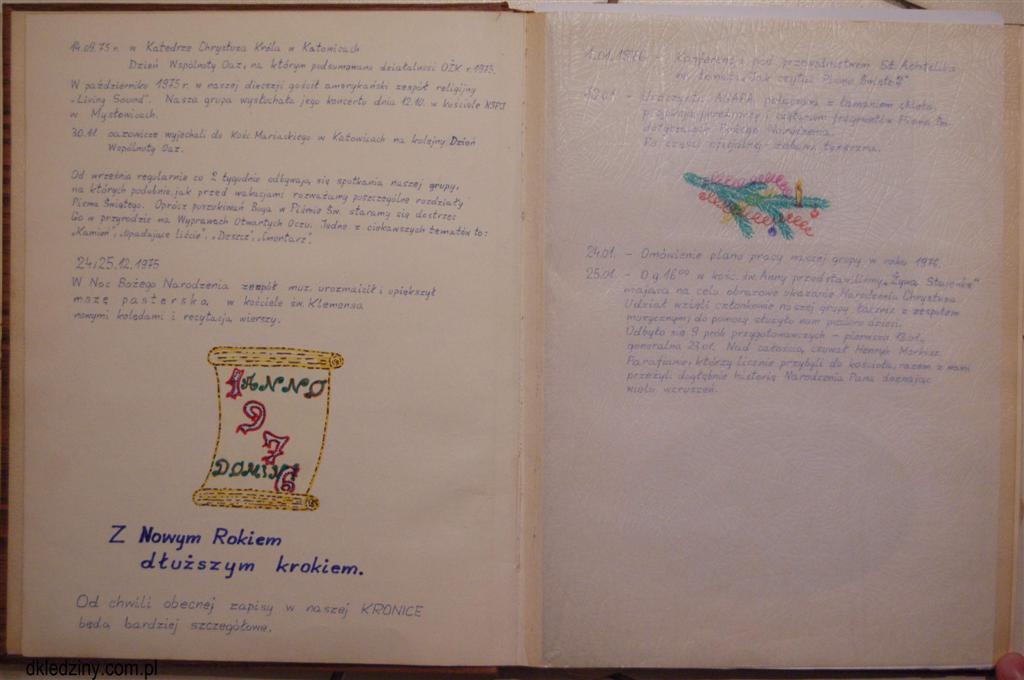 14.09.75 r. w Katedrze Chrystusa Króla w Katowicach
Dzień Wspólnoty Oaz, na którym podsumowano działalność OŻK r. 1975.
W październiku 1975 r. w naszej diecezji gościł amerykański zespół religijny
„Living Sound". Nasza grupa wysłuchała jego koncertu dnia 12.10. w kościele NSPJ
w Mysłowicach.
30.11 oazowicze wyjechali do Kość. Mariackiego w Katowicach na kolejny Dzień
Wspólnoty Oaz.
Od września regularnie co 2 tygodnie odbywają się spotkania naszej grupy,
na których podobnie, jak przed wakacjami rozważamy poszczególne rozdziały
Pisma Świętego. Oprócz poszukiwań Boga w Piśmie Św. staramy się dostrzec
Go w przyrodzie na Wyprawach Otwartych Oczu. Jedne z ciekawszych tematów to:
„Kamień", „Spadające liście", „Deszcz", „Cmentarz".
24/25.12.1975
W Noc Bożego Narodzenia zespół muz. urozmaicił i upiększył
mszę pasterską w kościele św. Klemensa
nowymi kolędami i recytacją wierszy.
1 ANNO
9
7
DOMINI
6
Z Nowym Rokiem
dłuższym krokiem.
Od chwili obecnej zapisy w naszej KRONICE
będą bardziej szczegółowe.
1.01.1976 - Konferencja pod przewodnictwem St. Achtelika
na temat „Jak czytać Pismo Święte?"
- Uroczysta AGAPA połączona z łamaniem chleba,
i czytaniem fragmentów Pisma Św.
dotyczących Bożego Narodzenia.
Po części oficjalnej - zabawa taneczna.
24.01. - Omówienie planu pracy naszej grupy w roku 1976.
25.01. - O g. 16⁰⁰ w kośc. św. Anny przedstawiliśmy „Żywą Stajenkę"
mającą na celu obrazowe ukazanie Narodzenia Chrystusa.
Udział wzięli członkowie naszej grupy łącznie z zespołem
muzycznym; do pomocy służyło nam pomoro dzieci.
Odbyło się 9 prób przygotowawczych - pierwsza 13.01.,
generalna 23.01. Nad całością czuwał Henryk Markiez.
Parafianie, którzy licznie przybyli do kościoła, razem z nami
przeżyli dogłębnie historię Narodzenia Pana doznając
wielu wzruszeń.
dkledziny.com.pl